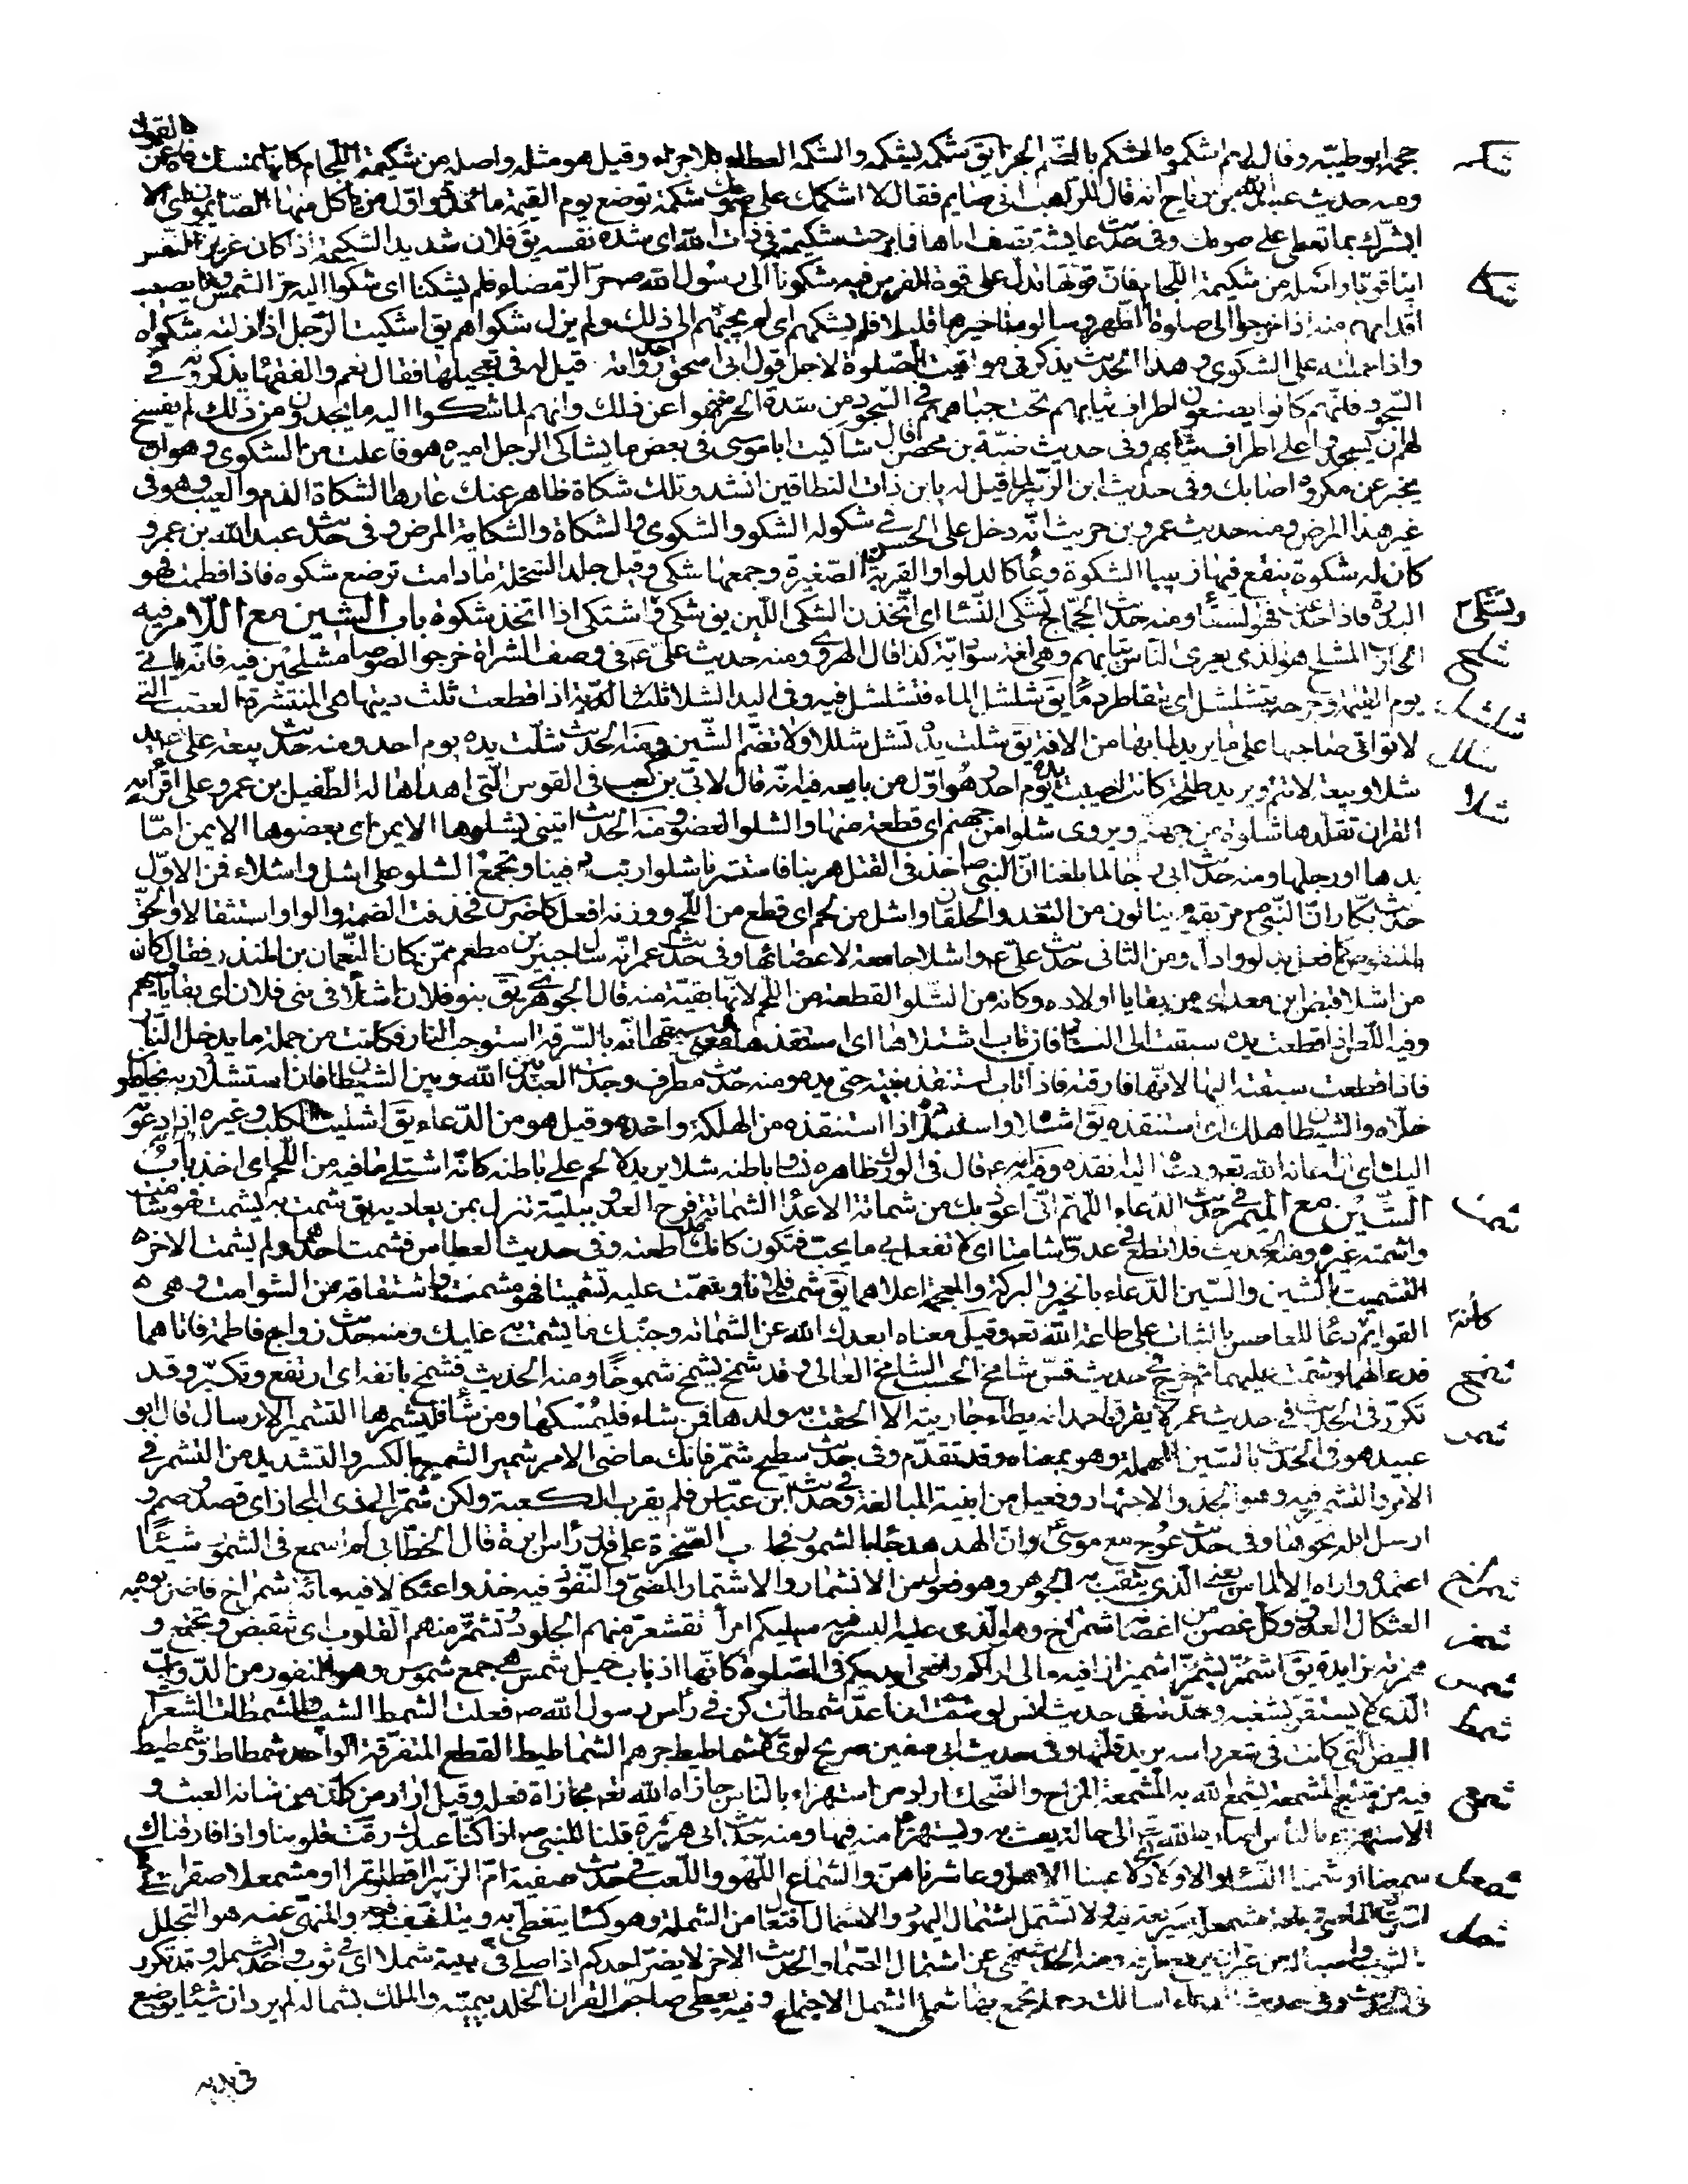 شكم
حجمه ابو طيبه وقال لهم اشكموه الشكم بالضم الجزا يق شكمه يشكمه والشكد العطاء بلا جزاء وقيل هو مثله واصله من شكيمة اللجام كانها تمسك فاه عن القول
ومنه حديث عبد الله بن رباح انه قال للراهب انى صايم فقال الا اشكمك على صومك شكمة توضع يوم القيمة مائدة واول من ياكل منها الصائمون اى الا
ابشرك بما تعطى على صومك وفى حديث عايشة تصف اباها فما برحت شكيمته فى ذات الله اى شدة نفسه يق فلان شديد الشكيمة اذا كان عزيز النفس
شكا
ابيا قويا واصله من شكيمة اللجام فان قوتها تدل على قوة الفرس فيه شكونا الى رسول الله ص حر الرمضاء فلم يشكنا اى شكوا اليه حر الشمس وما يصيب
اقدامهم منه اذا خرجوا الى صلوة الظهر وسالوه تاخيرها قليلا فلم يشكهم اى لم يجبهم الى ذلك ولم يزل شكواهم يق اشكيت الرجل اذا ازلت شكواه
واذا حملته على الشكوى وهذا الحديث يذكر فى مواقيت الصلوة لاجل قول ابى اسحق احد رواته قيل له فى تعجيلها فقال نعم والفقهاء يذكرونه فى
السجود فانهم كانوا يضعون اطراف ثيابهم تحت جباههم فى السجود من شدة الحر فنهوا عن ذلك وانهم لما شكوا اليه ما يجدون من ذلك لم يفسح
لهم ان يسجدوا على اطراف ثيابهم وفى حديث ضبة بن محصن قال شاكيت ابا موسى فى بعض ما يشاكى الرجل اميره هو فاعلت من الشكوى وهو ان
يخبر عن مكروه اصابك وفى حديث ابن الزبير لما قيل له يابن ذات النطاقين انشد وتلك شكاة ظاهر عنك عارها الشكاة الذم والعيب وهو فى
غير هذا المرض ومنه حديث عمرو بن حريث انه دخل على الحسن فى شكو له الشكو والشكوى والشكاة والشكاية المرض وفى حديث عبد الله بن عمرو
كان له شكوة ينقع فيها زبيبا الشكوة وعاء كالدلو او القربة الصغيرة وجمعها شكى وقيل جلد السخلة ما دامت ترضع شكوه فاذا فطمت فهو
وتشكى
البدرة فاذا اجذعت فهو السقاء ومنه حديث الحجاج تشكى النساء اى اتخذن الشكى اللبن يق شكى وتشكى واشتكى اذا اتخذ شكوة باب الشين مع اللام فيه
شلح
الحارب المشلح هو الذى يعرى الناس ثيابهم وهى لغة سوادية كذا قال الهروى ومنه حديث على ع فى وصف الشراة خرجوا لصوصا مشلحين فيه فانه ياتى
شلشل
يوم القيمة وجرحه يتشلشل اى يتقاطر دما يق شلشل الماء فتشلشل فيه وفى اليد الشلاء ثلث الدية اذا قطعت ثلث ديتها هى المنتشرة العصب التى
شلل
لا تواتى صاحبها على ما يريد لما بها من الافة يق شلت يده تشل شللا ولا تضم الشين ومنه الحديث شلت يده يوم احد ومنه حديث بيعة على ع يد
شلا
شلاء وبيعة لا تتم ويريد طلحة كانت اصيبت يده يوم احد وهو اول من بايعه فيه انه قال لابى بن كعب فى القوس التى اهداها له الطفيل بن عمرو على اقرائه
القران تقلدها شلوة من جهنم ويروى شلوا من جهنم اى قطعة منها والشلو العضو ومنه الحديث ايتنى بشلوها الايمن اى بعضوها الايمن اما
يدها او رجلها ومنه حديث ابى رجا لما بلغنا ان النبى ص اخذ فى القتل هربنا فاستثرنا شلو ارنب دفينا ويجمع الشلو على اشل واشلاء فمن الاول
حديث بكار ان النبى ص مر بقوم ينالون من الثعد والحلقان واشل من لحم اى قطع من اللحم ووزنه افعل كاضرس فحذفت الضمة والواو استثقالا والحق
بالمنقوص كما فعل بدلو وادل ومن الثانى حديث على ع واشلاء جامعة لاعضائها وفى حديث عمر انه سال جبير بن مطعم ممن كان النعمان بن المنذر فقال كان
من اشلاء قنص ابن معد اى من بقايا اولاده وكانه من الشلو القطعة من اللحم لانها بقية منه قال الجوهرى يق بنو فلان اشلاء فى بنى فلان اى بقايا فيهم
وفيه اللص اذا قطعت يده سبقت الى النار فان تاب اشتلاها اى استنقذها ومعنى سبقها انه بالسرقة استوجب النار فكانت من جملة ما يدخل النار
فاذا قطعت سبقته اليها لانها فارقته فاذا تاب استنقذ بنيته حتى يده ومنه حديث مطرف وجدت العبد بين الله وبين الشيطان فان استشلاه ربه نجا وان
خلاه والشيطان هلك اى استنقذه يق اشتلاه واستشلاه اذا استنقذه من الهلكة واخذه وقيل هو من الدعاء يق اشليت الكلب وغيره اذا دعوته
اليك اى ان اغاثه الله تعه ودعاه اليه انقذه وفيه انه ع قال فى الورك ظاهره نسا وباطنه شلا يريد لا لحم على باطنه كانه اشتلى ما فيه من اللحم اى اخذ باب
شمت
الشين مع الميم فى حديث الدعاء اللهم انى اعوذ بك من شماتة الاعداء الشماتة فرح العدو ببلية تنزل بمن يعاديه يق شمت به يشمت فهو شامت
واشمته غيره ومنه الحديث فلا تطع فى عدوا شامتا اى لا تفعل بى ما يحب فتكون كانك اطعته وفى حديث العطاس فشمت احدهما ولم يشمت الاخر
التشميت بالشين والسين الدعاء بالخير والبركة والمعجمة اعلاهما يق شمت فلانا وشمت عليه تشميتا فهو مشمت واشتقاقه من الشوامت وهى
كانه
القوايم دعا للعاطس بالثبات على طاعة الله تعه وقيل معناه ابعدك الله عن الشماتة وجنبك ما يشمت به عليك ومنه حديث زواج فاطمة فاتاهما
شمخ
فدعا لهما وشمت عليهما ثم خرج فى حديث قس شامخ الحسب الشامخ العالى وقد شمخ يشمخ شموخا ومنه الحديث فشمخ بانفه اى ارتفع وتكبر وقد
شمر
تكرر فى الحديث فى حديث عمر لا يقرن احد انه يطاء جاريته الا الحقت به ولدها فمن شاء فليمسكها ومن شاء فليشمرها التشمير الارسال قال ابو
عبيد هو فى الحديث بالسين المهملة وهو بمعناه وقد تقدم وفى حديث سطيح شمر فانك ماضى الامر شمير الشمير بالكسر والتشديد من التشمر فى
الامر والتشمير فيه وهو الجد والاجتهاد وفعيل من ابنية المبالغة وفى حديث ابن عباس فلم يقرب الكعبة ولكن شمر الى ذى المجاز اى قصد وصمم و
ارسل ابله نحوها وفى حديث عوج مع موسى ع وان الهدهد جاء بالشمور فجاب الصخرة على قدر راس ابرة قال الخطابى لم اسمع فى الشمور شيئا
شمراخ
اعتمده واراه الالماس يعنى الذى يثقب به الجوهر وهو فعول من الانشمار والاشتمار المضى والنفوذ فيه خذوا عثكالا فيه مائة شمراخ فاضربوه به
شمز
العثكال العذق وكل غصن من اغصانه شمراخ وهو الذى عليه البسر فيه سيليكم امراء تقشعر منهم الجلود وتشمئز منهم القلوب اى تتقبض وتجتمع و
شمس
همزته زايدة يق اشمئز يشمئز اشميزازا فيه مالى اراكم رافعى ايديكم فى الصلوة كانها اذناب خيل شمس هى جمع شموس وهو النفور من الدواب
شمط
الذى لا يستقر لشغبه وحدته فى حديث انس لو شئت ان اعد شمطات كن فى راس رسول الله ص فعلت الشمط الشيب والشمطات الشعرات
البيض التى كانت فى شعر راسه يريد قلتها وفى حديث ابى سفين صريح لوى لا شماطيط جرهم الشماطيط القطع المتفرقة الواحد شمطاط وشمطيط
شمع
فيه من يتتبع المشمعة يشمع الله به المشمعة المزاح والضحك اراد من استهزاء بالناس جازاه الله تعه مجازاة فعله وقيل اراد من كان من شانه العبث و
الاستهزاء بالناس اصاره الله تعه الى حالة يعبث به ويستهزا منه فيها ومنه حديث ابى هريرة قلنا للنبى ص اذا كنا عندك رقت قلوبنا واذا فارقناك
شمعل
شممنا او شمعنا النساء والاولاد اى لاعبنا الاهل وعاشرناهن والشماع اللهو واللعب فى حديث صفية ام الزبير اقطا وتمرا او مشمعلا صقرا
شمل
المشمعل السريع الماضى وناقة مشمعلة سريعة فيه ولا تشتمل اشتمال اليهود الاشتمال افتعال من الشملة وهو كساء يتغطى به ويتلفف فيه والمنهى عنه هو التجلل
بالثوب واسباله من غير ان يرفع طرفه ومنه الحديث نهى عن اشتمال الصماء والحديث الاخر لا يضر احدكم اذا صلى فى بيته شملا اى فى ثوب واحد يشمله وقد تكرر
فى الحديث وفى حديث الدعاء اسالك رحمة تجمع بها شملى الشمل الاجتماع وفيه يعطى صاحب القران الخلد بيمينه والملك بشماله لم يرد ان شيئا يوضع
فى يديه